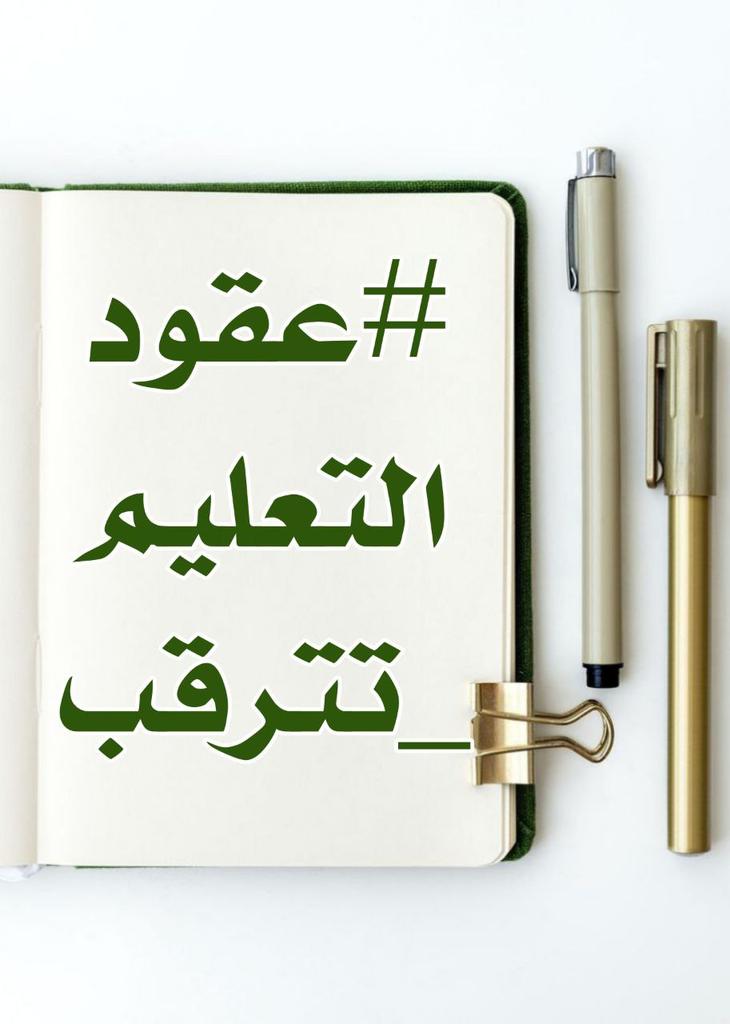 #عقود
التعليم
_تترقب